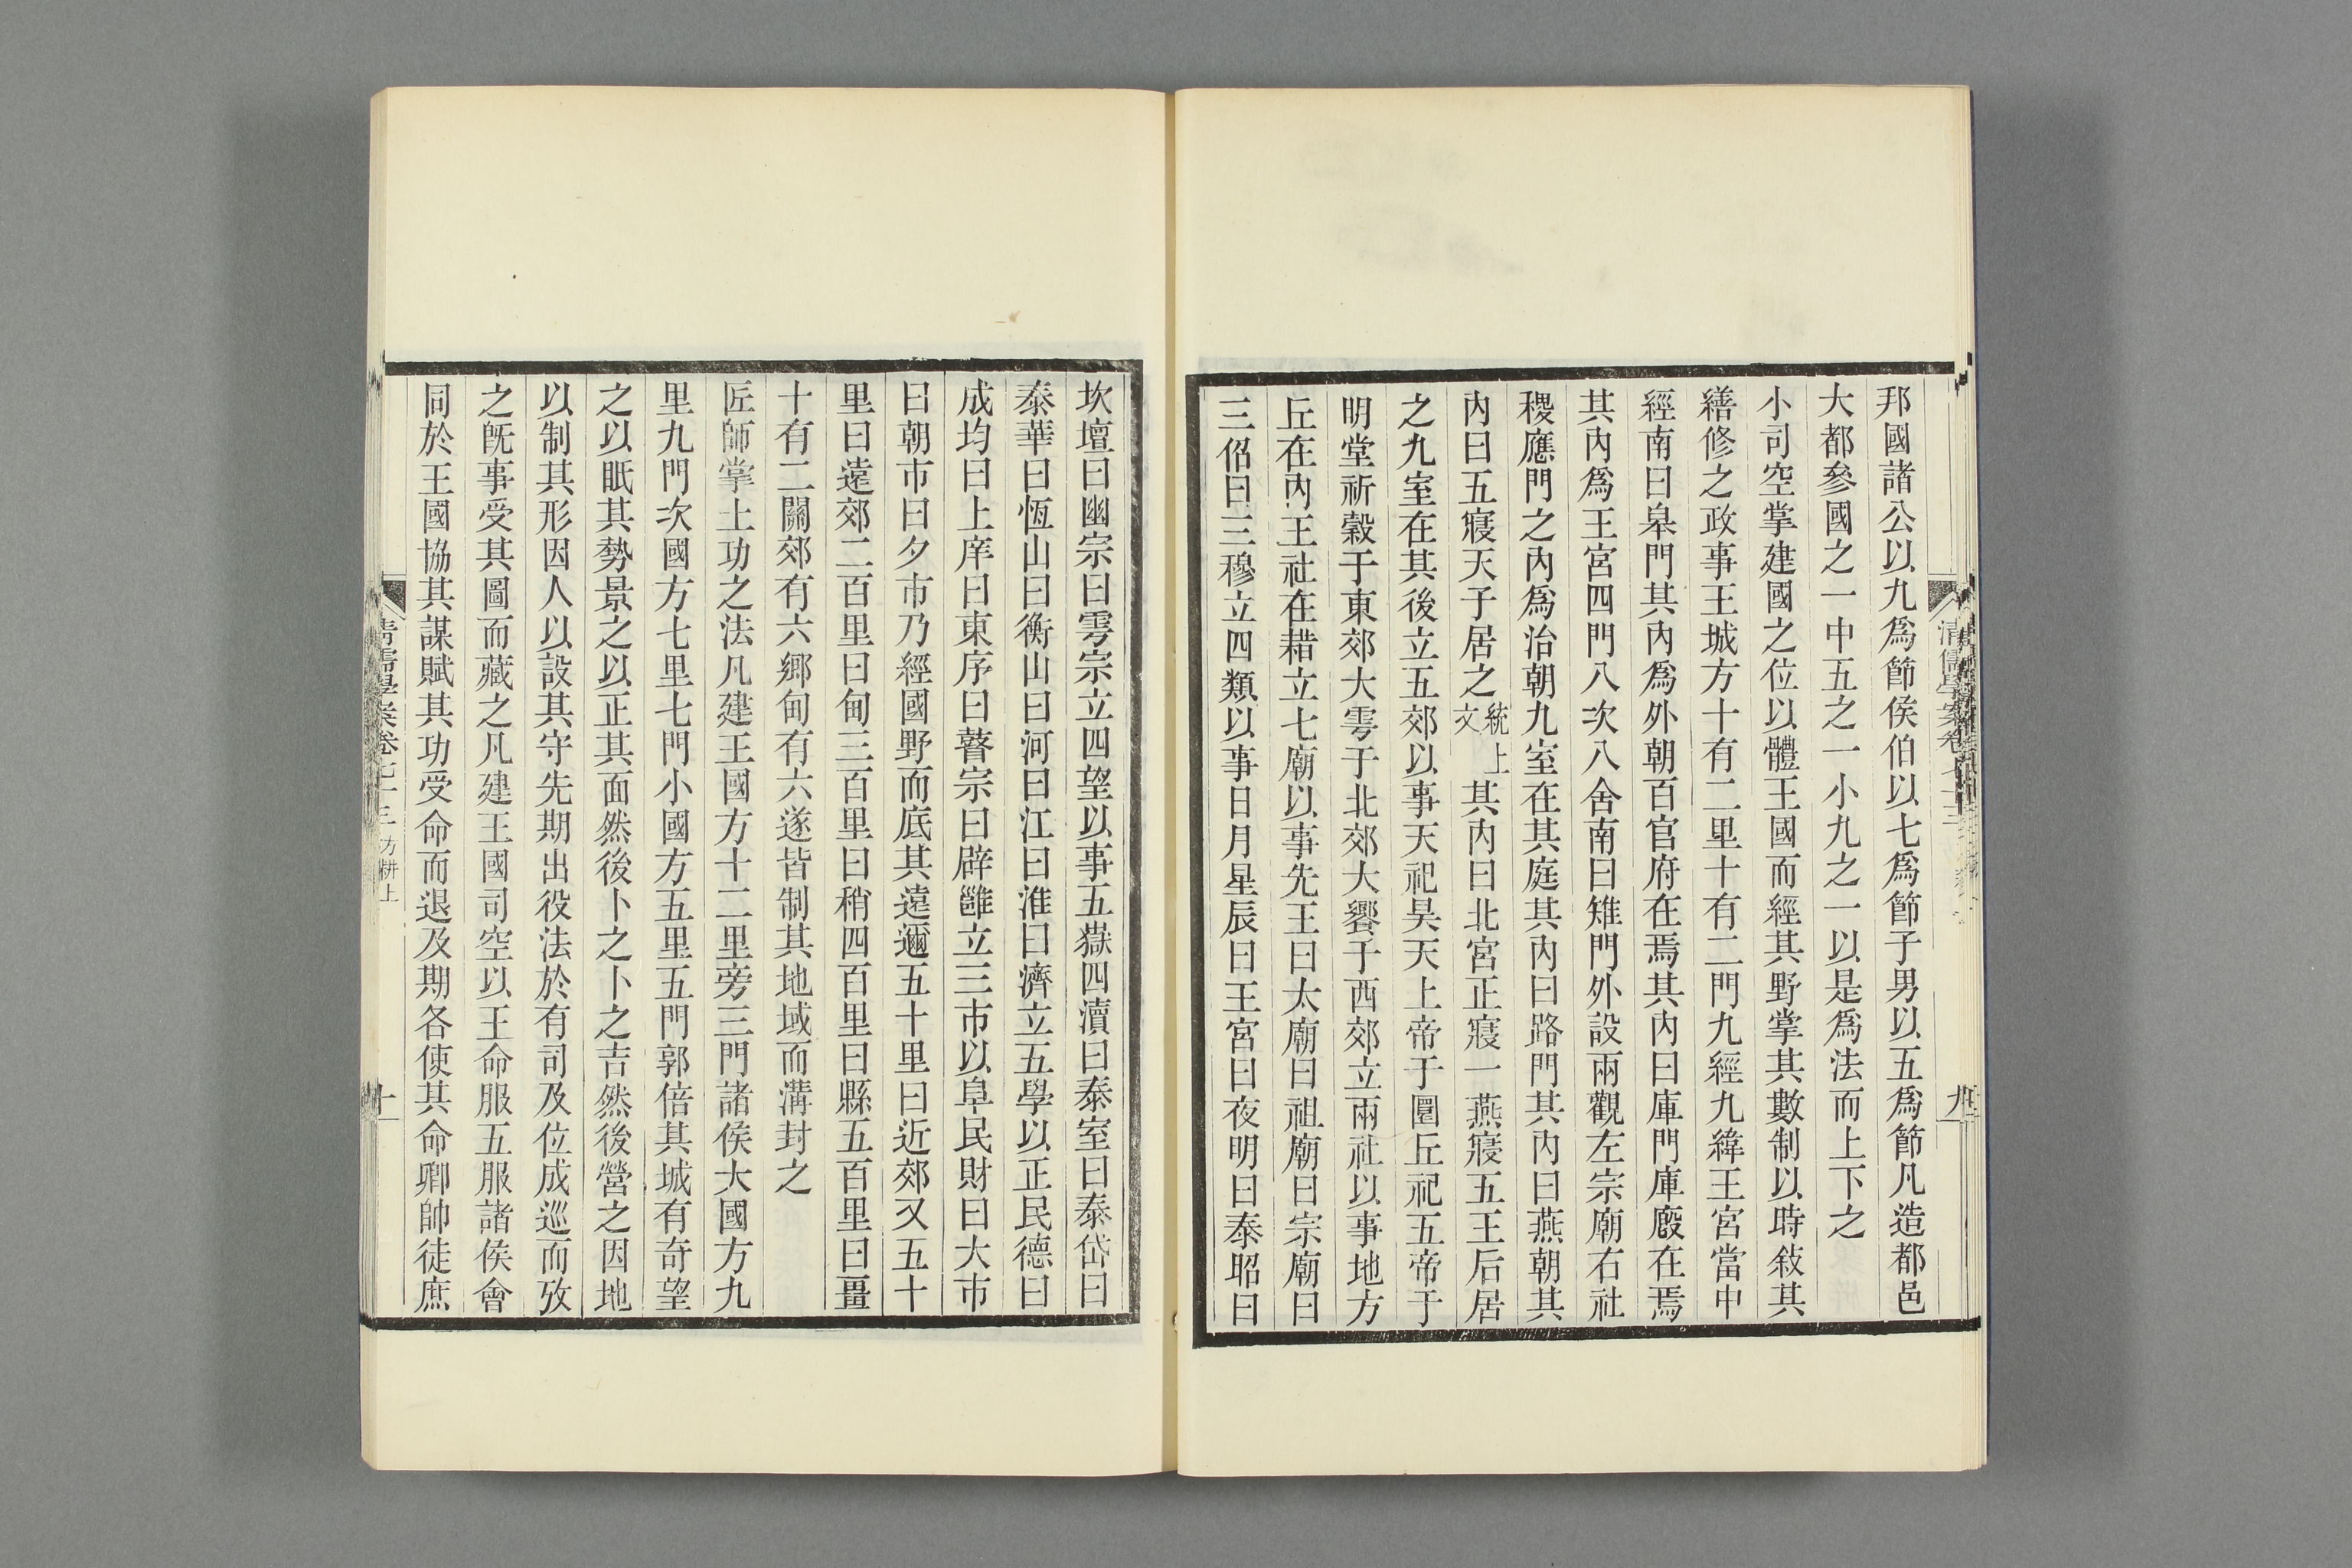 邦國諸公以九爲節侯伯以七爲節子男以五爲節凡造都邑
大都參國之一中五之一小九之一以是爲法而上下之
小司空掌建國之位以體王國而經其野掌其數制以時敍其
繕修之政事王城方十有二里十有二門九經九緯王宮當中
經南曰皋門其內爲外朝百官府在焉其內曰庫門庫廏在焉
其內爲王宮四門八次八舍南曰雉門外設兩觀左宗廟右社
稷應門之內爲治朝九室在其庭其內曰路門其內曰燕朝其
內曰五寢天子居之統上文其內曰北宮正寢一燕寢五王后居
之九室在其後立五郊以事天祀昊天上帝于圜丘祀五帝于
明堂祈穀于東郊大雩于北郊大饗于西郊立兩社以事地方
丘在內王社在耤立七廟以事先王曰太廟曰祖廟曰宗廟曰
三佋曰三穆立四類以事日月星辰曰王宮曰夜明曰泰昭曰
清儒學案卷七十三
九
坎壇曰幽宗曰雩宗立四望以事五嶽四瀆曰泰室曰泰岱曰
泰華曰恆山曰衡山曰河曰江曰淮曰濟立五學以正民德曰
成均曰上庠曰東序曰瞽宗曰辟雝立三市以阜民財曰大市
曰朝市曰夕市乃經國野而底其遠邇五十里曰近郊又五十
里曰遠郊二百里曰甸三百里曰稍四百里曰縣五百里曰畺
十有二關郊有六鄉甸有六遂皆制其地域而溝封之
匠師掌土功之法凡建王國方十二里旁三門諸侯大國方九
里九門次國方七里七門小國方五里五門郭倍其城有奇望
之以眂其勢景之以正其面然後卜之卜之吉然後營之因地
以制其形因人以設其守先期出役法於有司及位成巡而攷
之旣事受其圖而藏之凡建王國司空以王命服五服諸侯會
同於王國協其謀賦其功受命而退及期各使其命卿帥徒庶
清儒學案卷七十三 方耕上
十